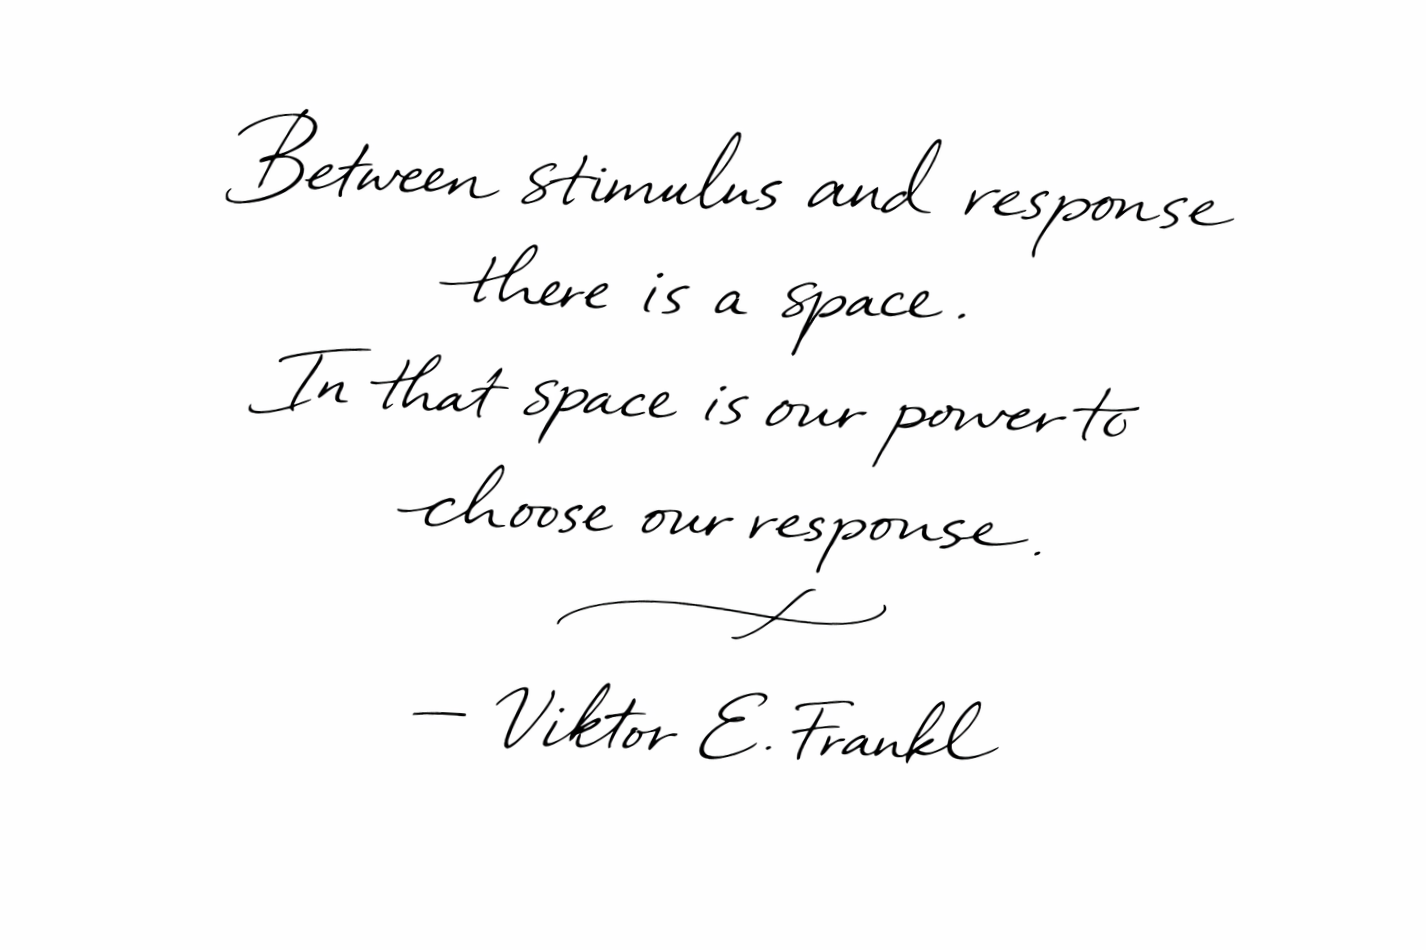 Between stimulus and response
there is a space.
In that space is our power to
choose our response.
— Viktor E. Frankl